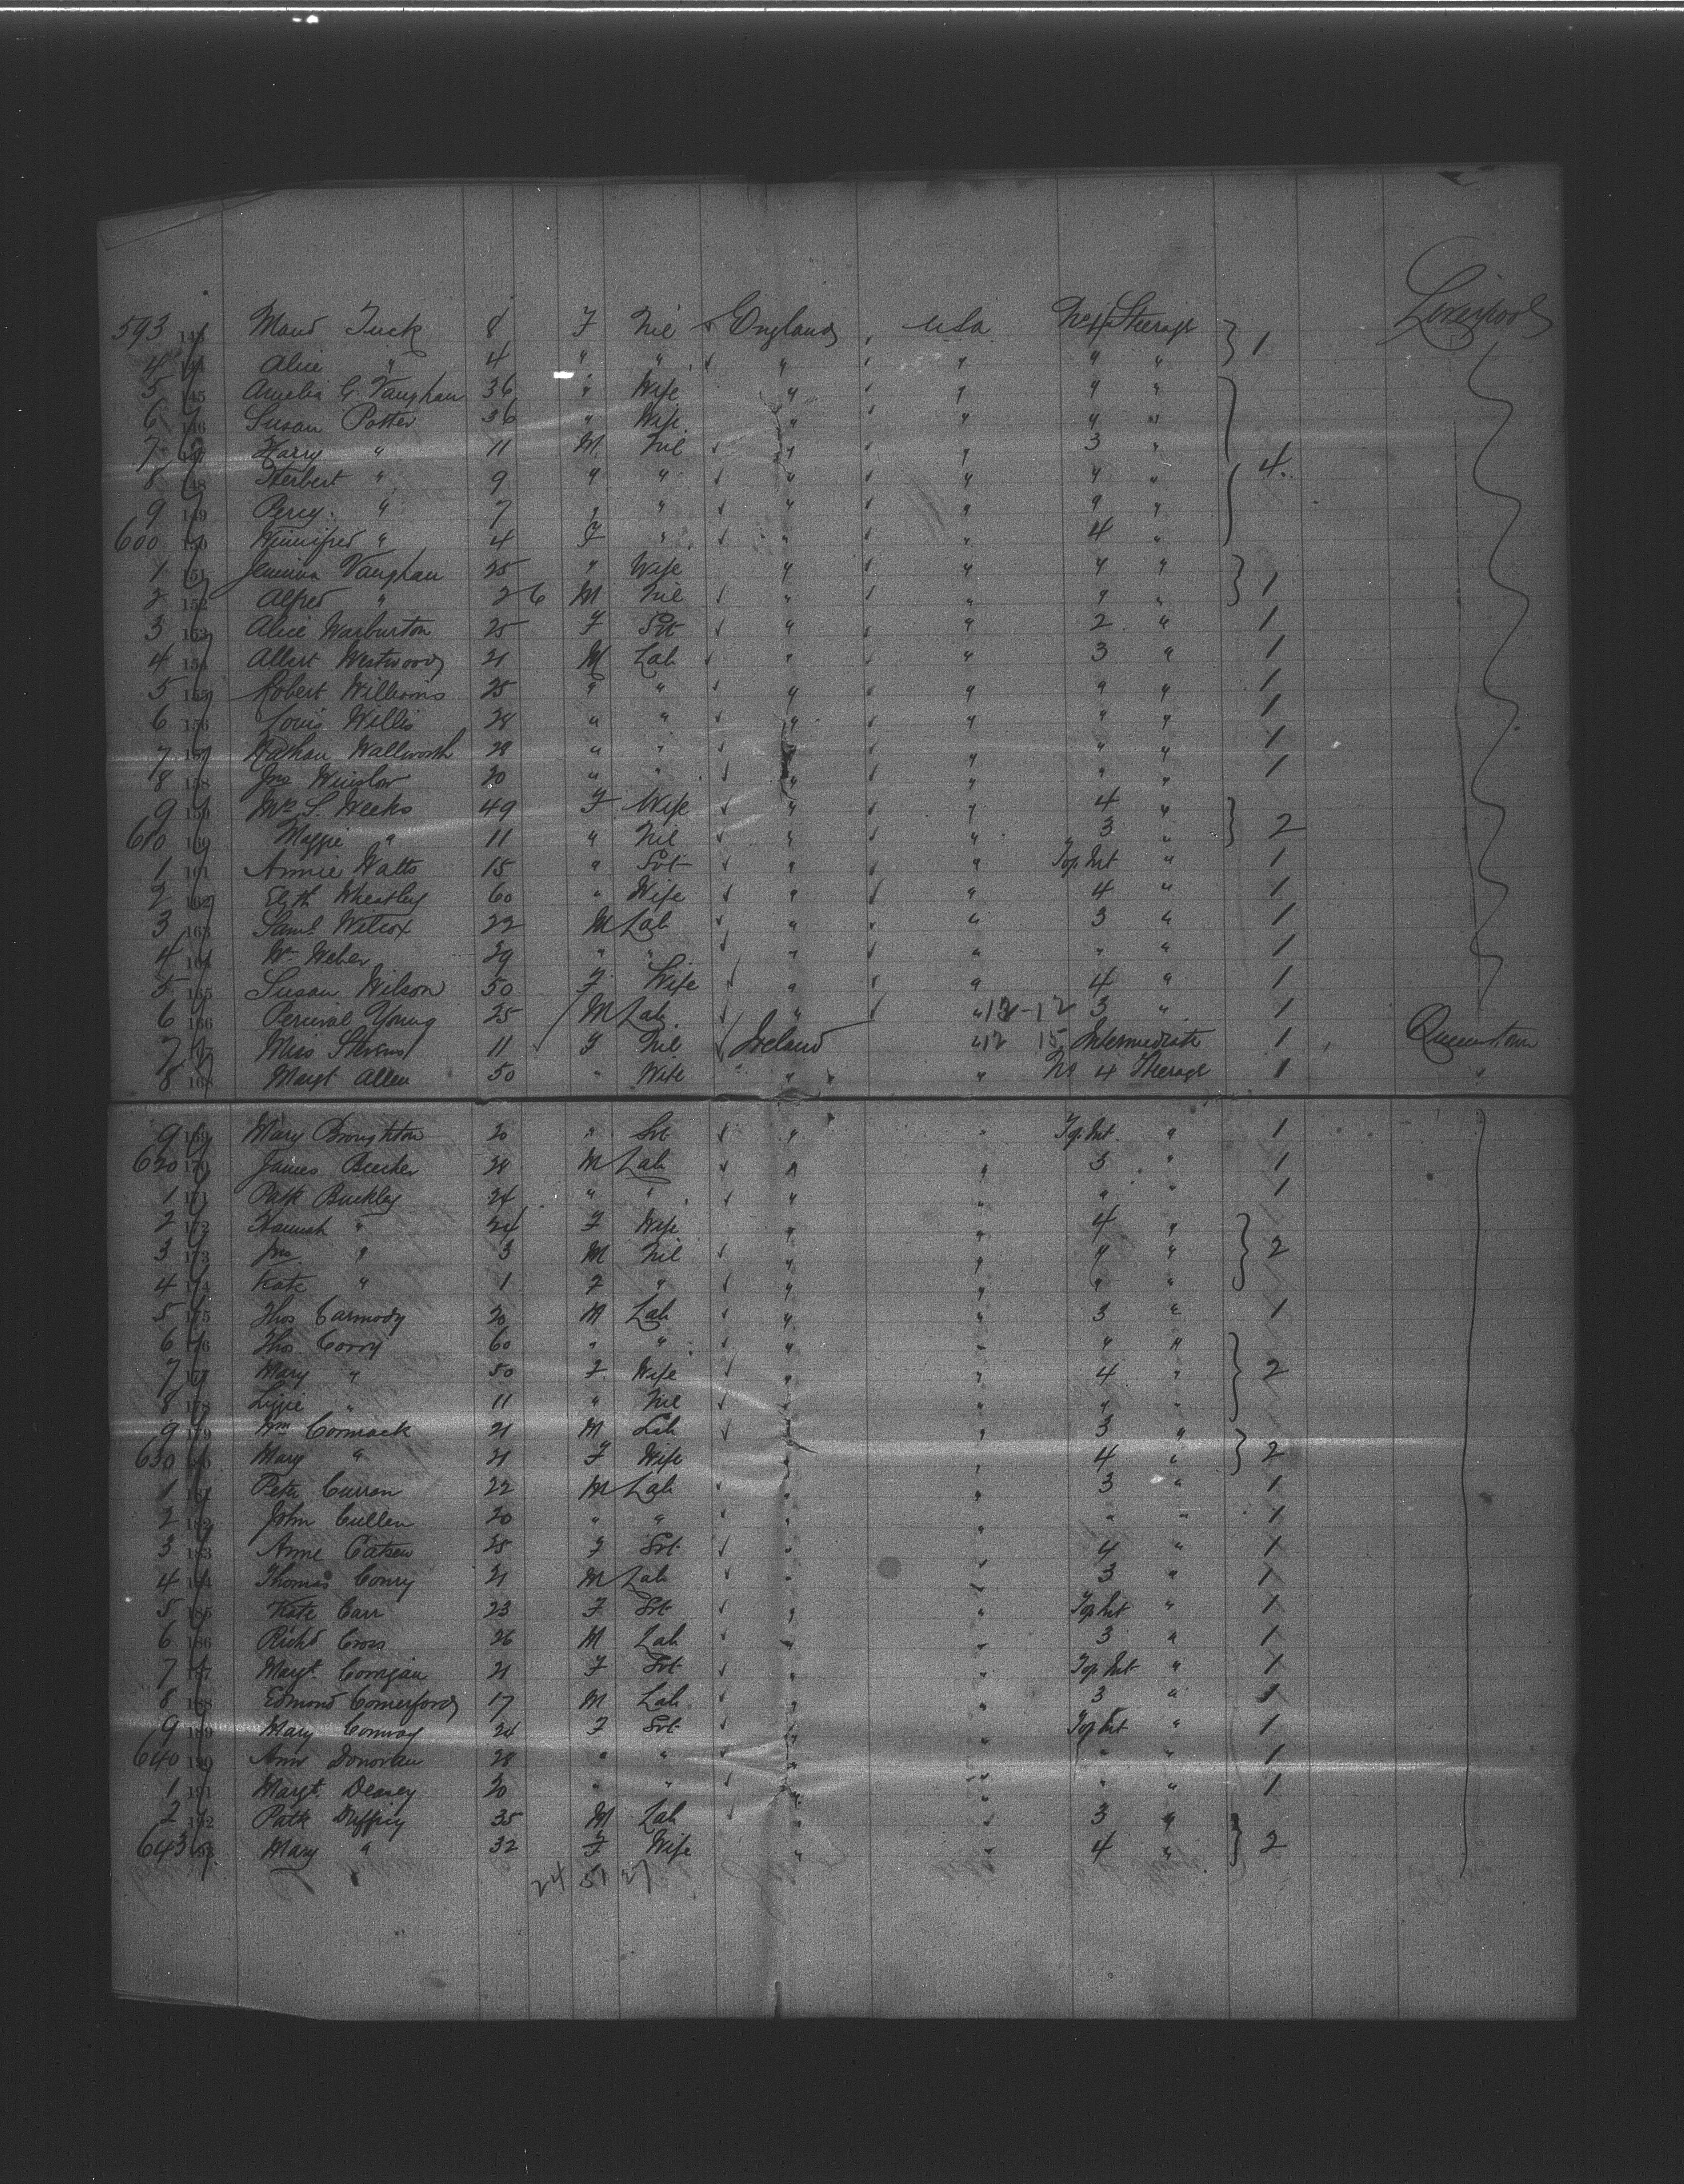 593 143 Maud Tuck 8 F Nil England USA No 4 Steerage } 1 Liverpool
4 144 Alice " 4 " " " " " "
5 145 Amelia G Vaughan 36 " Wife " " " "
6 146 Susan Potter 36 " Wife " " " "
7 147 Harry " 11 M Nil " " 3 "
8 148 Herbert " 9 " " " " " " 4
9 149 Percy " 7 " " " " " "
600 150 Winnifred " 4 F " " " 4 "
1 151 Jemima Vaughan 25 " Wife " " " "
2 152 Alfred " 2 6 M Nil " " " " } 1
3 153 Alice Warburton 25 F Svt " " 2 " 1
4 154 Albert Westwood 21 M Lab " " 3 " 1
5 155 Robert Williams 25 " " " " " " 1
6 156 Louis Willis 28 " " " " " " 1
7 157 Nathan Wallworth 28 " " " " " " 1
8 158 Jno Winslow 20 " " " " " " 1
9 159 Mrs S. Weeks 49 F Wife " " 4 "
610 160 Maggie " 11 " Nil " " 3 " } 2
1 161 Annie Watts 15 " Svt " " Top Int " 1
2 162 Elizth Wheatley 60 " Wife " " 4 " 1
3 163 Saml Wilcox 22 M Lab " " 3 " 1
4 164 Wm Weber 29 " " " " " " 1
5 165 Susan Wilson 50 F Wife " " 4 " 1
6 166 Percival Young 25 M Lab " " 12-12 3 " 1
7 167 Miss Stevens 11 F Nil Ireland " 12 15 Intermediate 1 Queenstown
8 168 Margt Allen 50 " Wife " " No 4 Steerage 1 "
9 169 Mary Broughton 20 " Svt " " Top Int " 1
620 170 James Beecher 28 M Lab " " 3 " 1
1 171 Patk Buckley 24 " " " " " " 1
2 172 Hannah " 24 F Wife " " 4 "
3 173 Jno " 3 M Nil " " " " } 2
4 174 Kate " 1 F " " " " "
5 175 Thos Carmody 20 M Lab " " 3 " 1
6 176 Thos Corry 60 " " " " " "
7 177 Mary " 50 F Wife " " 4 " } 2
8 178 Lizzie " 11 " Nil " " " "
9 179 Wm Cormack 21 M Lab " " 3 "
630 180 Mary " 21 F Wife " " 4 " } 2
1 181 Peter Curran 22 M Lab " " 3 " 1
2 182 John Cullen 20 " " " " " " 1
3 183 Anne 25 F Svt " " 4 " 1
4 184 Thomas Conry 21 M Lab " " 3 " 1
5 185 Kate Carr 23 F Svt " " Top Int " 1
6 186 Richd Cross 26 M Lab " " 3 " 1
7 187 Margt Corrigan 21 F Svt " " Top Int " 1
8 188 Edmond Comerford 17 M Lab " " 3 " 1
9 189 Mary Conway 24 F Svt " " Top Int " 1
640 190 Ann Donovan 28 " " " " " " 1
1 191 Margt Deasey 20 " " " " " " 1
2 192 Patk Duffey 35 M Lab " " 3 "
643 193 Mary " 32 F Wife " " 4 " } 2
24 51 27